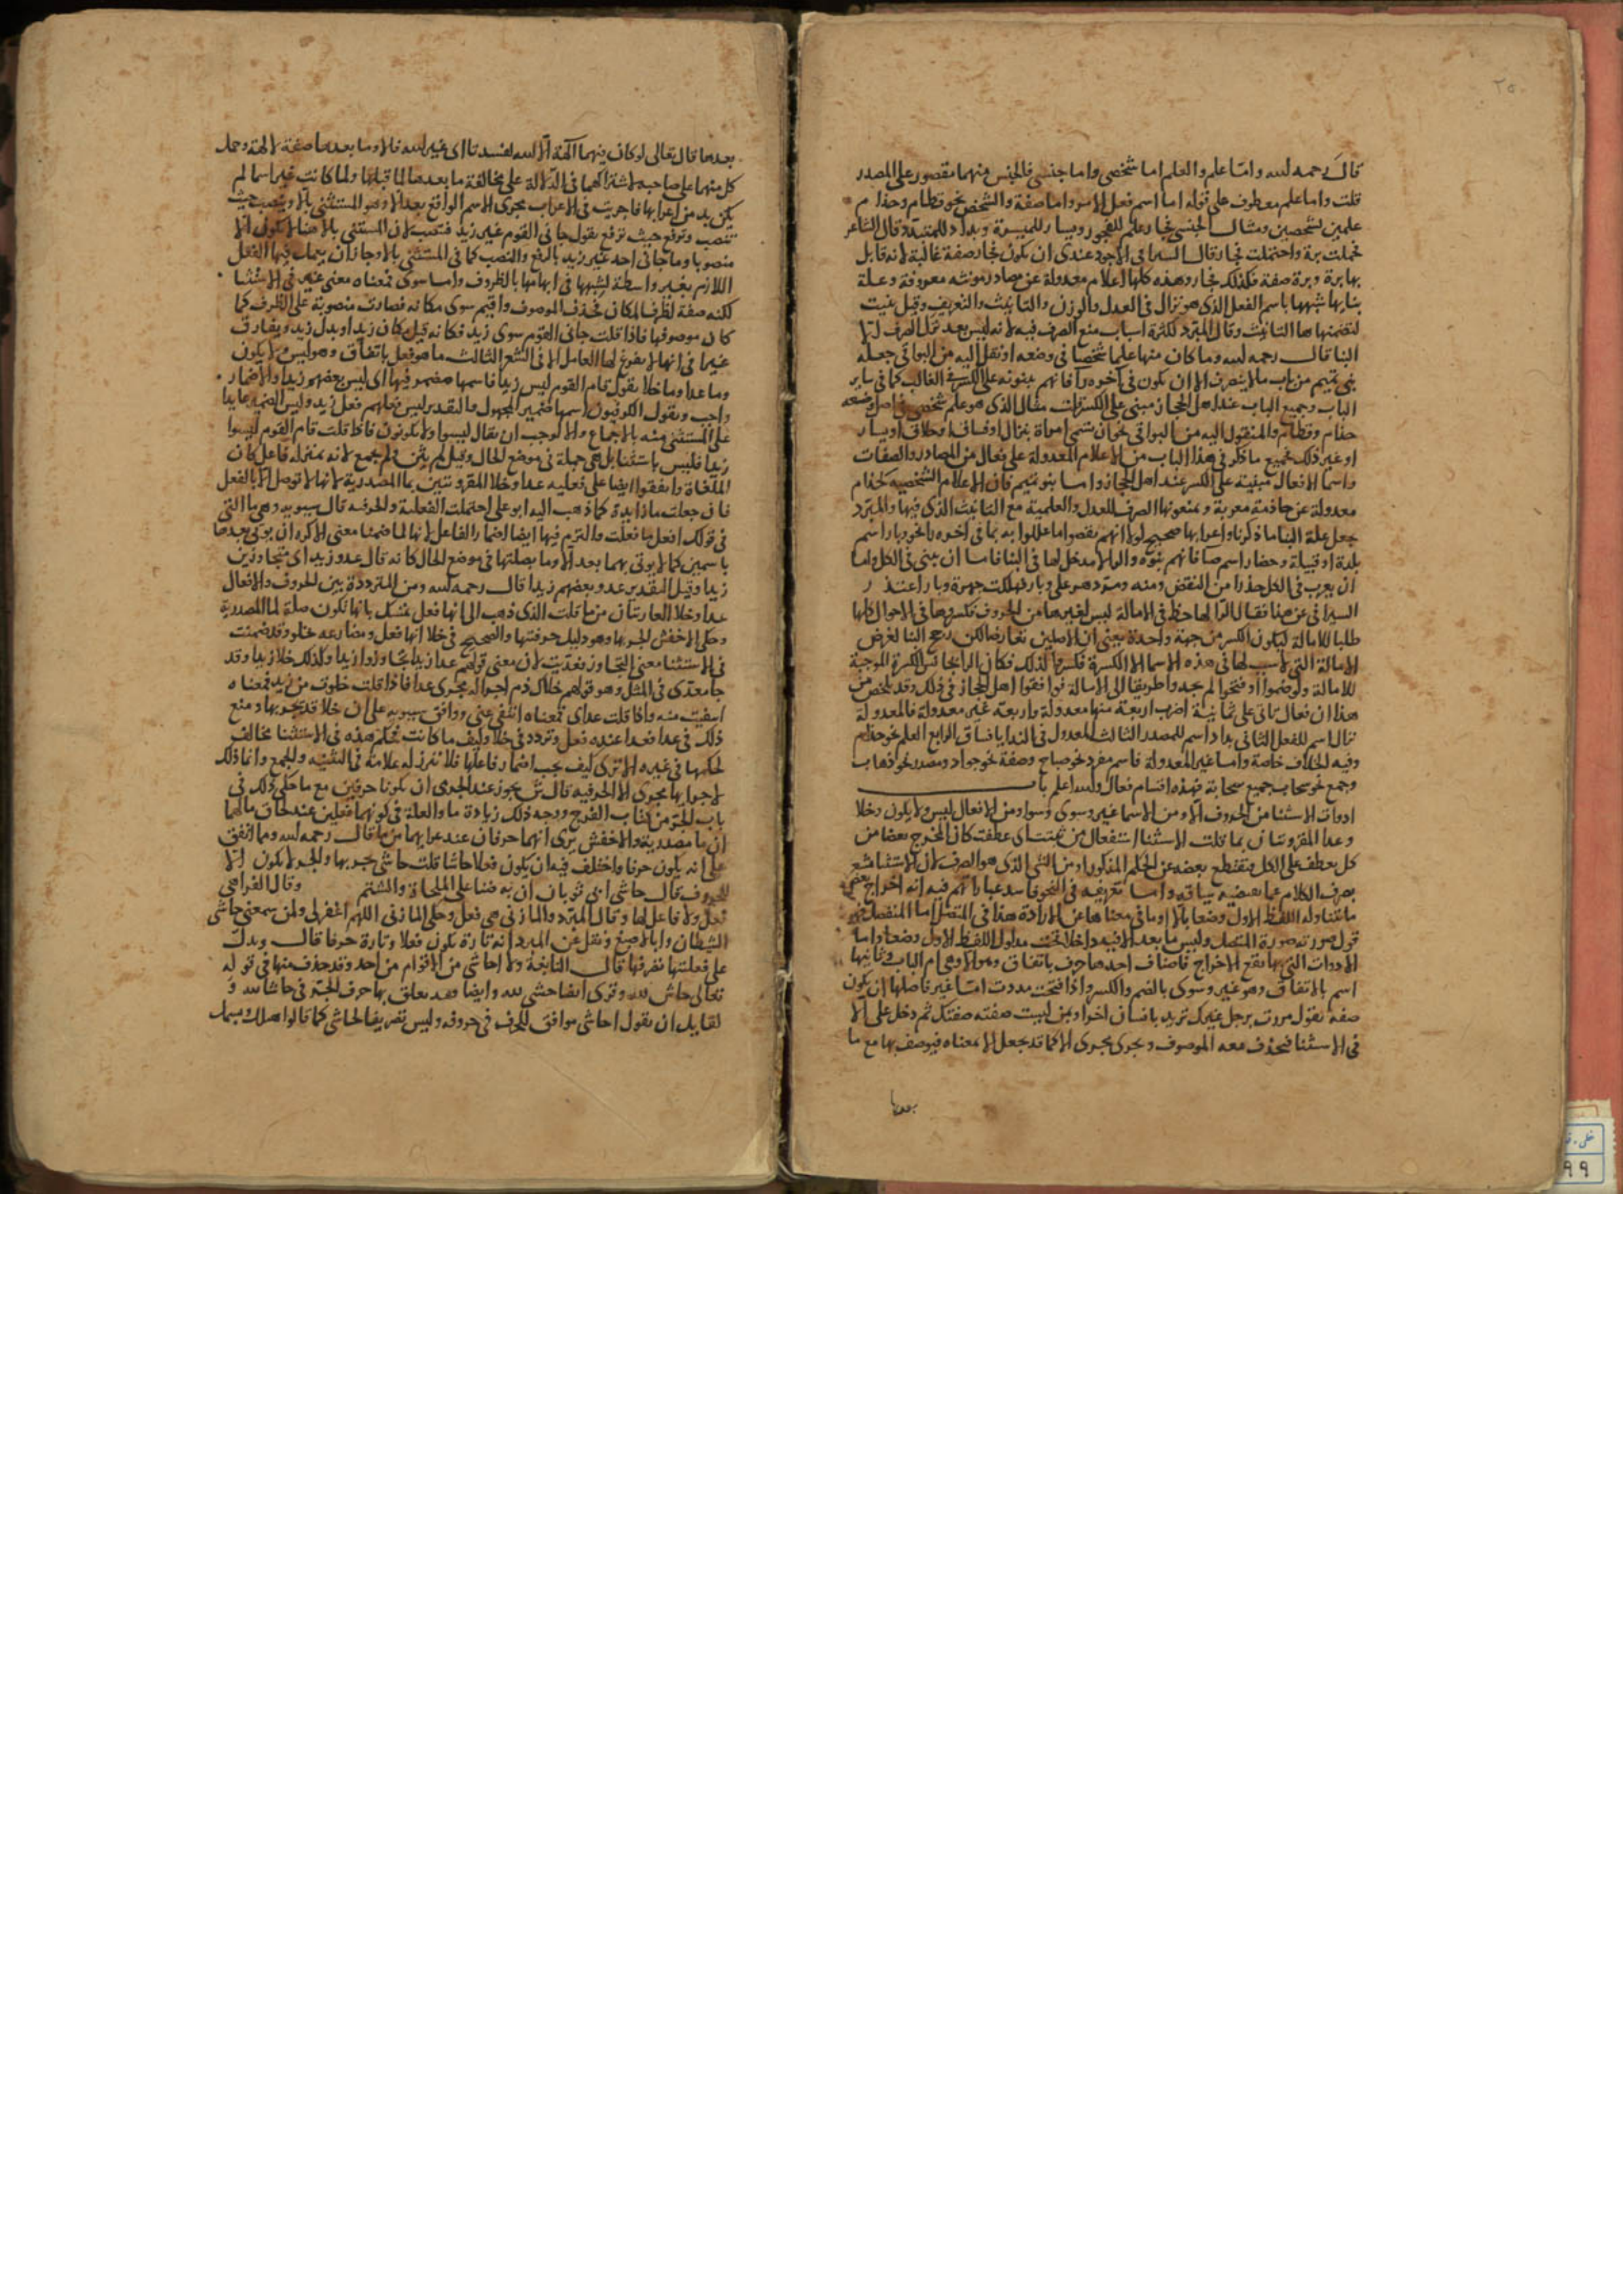 ٢٥٠
قال رحمه الله واما علم والعلم اما شخصى واما جنسى فالجنس منهما مقصور على المصدر
قلت واما علم معطوف على قوله اما اسم فعل الامر واما صفة والشخص نحو قطام وحذام
علمين لشخصين ومثال الجنسى فجار علم للفجور ويسار للميسرة وبداد للمتبدد قال الشاعر
فحملت برة واحتملت فجار قال السيرافى الاجود عندى ان يكون فجار صفة غالبة لانه قابل
بها برة وبرة صفة فكذلك فجار وهذه كلها اعلام معدولة عن مصادر مونثه معروفة وعلة
بنايها شبهها باسم الفعل الذى هو نزال فى العدل والوزن والتانيث والتعريف وقيل بنيت
لتضمنها ها التانيث وقال المبرد لكثرة اسباب منع الصرف فيه لانه ليس بعد ترك الصرف الا
البنا قال رحمه الله وما كان منها علما شخصيا فى وضعه او نقل اليه من البواقى جعله
بنى تميم من باب ما لا ينصرف الا ان يكون فى آخره را فانهم يبنونه على الكسر فى الغالب كما فى ساير
الباب وجميع الباب عند اهل الحجاز مبنى على الكسر قلت مثال الذى هو علم شخصى فى اصل وضعه
حذام وقطام والمنقول اليه من البواقى نحو ان تسمى امراة بنزال او فساق او حلاق او يسار
او غير ذلك فجميع ما ذكر فى هذا الباب من الاعلام المعدولة على فعال من المصادر والصفات
واسما الافعال مبنية على الكسر عند اهل الحجاز واما بنو تميم فان الاعلام الشخصية كحذام
معدولة عن حاذمة معربة ويمنعونها الصرف للعدل والعلمية مع التانيث الذى فيها والمبرد
جعل علة البنا ما ذكرنا واعرابها صحيح لولا انهم نقضوا ما عللوا به بما فى آخره را نحو وبار اسم
بلدة او قبيلة وحضار اسم فانهم بنوه والرا لا مدخل لها فى البنا فاما ان يبنى فى الكل واما
ان يعرب فى الكل حذرا من النقض ومنه ومر دهر على وبار فهلكت جهرة وبار اعتذر
السيرافى عن هذا فقال الرا لها حظ فى الامالة ليس لغيرها من الحروف فكسروها فى الاحوال كلها
طلبا للامالة ليكون الكسر من جهة واحدة يعنى ان الاصلين تعارضا لكن رجح البنا لغرض
الامالة التى لا سبب لها فى هذه الاسما الا الكسرة فكسروا لذلك فكان الرا بجانس الكسرة الموجبة
للامالة ولو ضموا او فتحوا لم يجدوا طريقا الى الامالة فوافقوا اهل الحجاز فى ذلك وقد تلخص من
هذا ان فعال تاتى على ثمانية اضرب اربعة منها معدولة واربعة غير معدولة فالمعدولة
نزال اسم للفعل الثانى بداد اسم للمصدر الثالث المعدول فى الندا يا فساق الرابع العلم نحو حذام
وفيه الخلاف خاصة واما غير المعدولة فاسم مفرد نحو صباح وصفة نحو جواد ومصدر نحو ذهاب
وجمع نحو سحاب جميع سحابة فهذه اقسام فعال والله اعلم باب
ادوات الاستثنا من الحروف الا ومن الاسما غير وسوى وسوا ومن الافعال ليس ولا يكون وخلا
وعدا المقرونتان بما قلت الاستثنا استفعال من ثنيت اى عطفت كان المخرج بعضا من
كل يعطف على الكل فيقتطع بعضه عن الحكم المذكور او من الثنى الذى هو الصرف لان الاستثنا
يصرف الكلام عما يقتضيه سياقه واما تعريفه فى النحو فاسد عباراتهم فيه انه اخراج بعض
ما تناوله اللفظ الاول وضعا بالا او ما فى معناها عن الارادة هذا فى المتصل اما المنفصل فهو
قول صورته صورة المتصل وليس ما بعد الا فيه داخلا تحت مدلول اللفظ الاول وضعا واما
الادوات التى بها يقع الاخراج فاصناف احدها حرف باتفاق وهو الا وهى ام الباب وثانيها
اسم بالاتفاق وهو غير وسوى بالضم والكسر واذا فتحت مددت اما غير فاصلها ان يكون
صفه تقول مررت برجل غيرك تريد بانسان اخر او بمن ليست صفته صفتك ثم دخل على الا
فى الاستثنا فيحذف معه الموصوف ويجرى مجرى الا كما قد يجعل الا بمعناه فيوصف بها مع ما
بعدها
بعدها قال تعالى لو كان فيهما آلهة الا الله لفسدتا اى غير الله فالا وما بعدها صفة لالهة وحمل
كل منهما على صاحبه لاشتراكهما فى الدلالة على مخالفة ما بعدهما لما قبلها ولما كانت غير اسما لم
يكن بد من اعرابها فاجريت فى الاعراب مجرى الاسم الواقع بعد الا وهو المستثنى بالا وينصب حيث
تنصب وترفع حيث ترفع تقول جانى القوم غير زيد فتنصب لان المستثنى بالا هنا لا يكون الا
منصوبا وما جانى احد غير زيد بالرفع والنصب كما فى المستثنى بالا وجاز ان يعمل فيها الفعل
اللازم بغير واسطة لشبهها فى ابهامها بالظروف واما سوى فمعناه معنى غير فى الاستثنا
لكنه صفة لظرف المكان فحذف الموصوف واقيم سوى مكانه فصارت منصوبة على الظرف كما
كان موصوفها فاذا قلت جانى القوم سوى زيد فكانه قيل مكان زيد او بدل زيد ويفارق
غيرا فى انها لا يفرغ لها العامل الا فى الشعر الثالث ما هو فعل باتفاق وهو ليس ولا يكون
وما عدا وما خلا تقول قام القوم ليس زيدا فاسمها مضمر فيها اى ليس بعضهم زيدا والاضمار
واجب ويقول الكوفيون اسمها ضمير المجهول والتقدير ليس فعلهم فعل زيد وليس الضمير عايدا
على المستثنى منه بالاجماع والا لوجب ان يقال ليسوا ولا يكونون فاذا قلت قام القوم ليسوا
زيدا فليس باستثنا بل هى جملة فى موضع الحال وقيل لم يثن ولم يجمع لانه بمنزله فاعل كان
الملغاة واتفقوا ايضا على فعليه عدا وخلا المقرونتين بما المصدرية لانها لا توصل الا بالفعل
فان جعلت ما زايدة كما ذهب اليه ابو على احتملت الفعلية والحرفيه قال سيبويه وهى ما التى
فى قولك افعل ما فعلت والتزم فيها ايضا اضمار الفاعل لانها لما ضمنا معنى الا كره ان يوتى بعدها
باسمين كما لا يوتى بهما بعد الا وما بصلتها فى موضع الحال كانه قال عدو زيد اى متجاوزين
زيدا وقيل التقدير عدو بعضهم زيدا قال رحمه الله ومن المترددة بين الحروف والافعال
عدا وخلا العاريتان من ما قلت الذى ذهب الى انها فعل تمسك بانها تكون صلة لما المصدرية
وحكى الاخفش الجر بها وهو دليل حرفيتها والصحيح فى خلا انها فعل ومضارعه يخلو وقد ضمنت
فى الاستثنا معنى التجاوز فعديت لان معنى قولهم عدا زيدا تجاوزوا زيدا وكذلك خلا زيدا وقد
جا معدى فى المثل وهو قولهم خلاك ذم اجراله مجرى عدا فاذا قلت خلوت من زيد فمعناه
انتفيت منه واذا قلت عداى فمعناه انتفى عنى ووافق سيبويه على ان خلا قد يجر بها ومنع
ذلك فى عدا فعدا عنده فعل وتردد فى خلا وكيف ما كانت فحكم هذه فى الاستثنا مخالف
لحكمها فى غيره الا ترى كيف يجب اضمار فاعلها فلا تبرز له علامة فى التثنيه والجمع وانما ذلك
لاجرايها مجرى الا الحرفيه قال يجوز عند الجرمى ان يكونا حرفين مع ما حكى ذلك فى
باب الجر من كتاب الفرخ ووجه ذلك زيادة ما والعلة فى كونهما فعلين عند لحاق ما لهما
ان ما مصدرية والاخفش يرى انهما حرفان عند عرايهما من ما قال رحمه الله وما اتفق
على انه يكون حرفا واختلف فيه ان يكون فعلا حاشا قلت حاشى يجر بها والجر لا يكون الا
للحروف قال حاشى ابى ثوبان ان به ضنا على الملحاة والشتم وقال الفرا هى
فعل ولا فاعل لها وقال المبرد والمازنى هى فعل وحكى المازنى اللهم اغفر لى ولمن سمعنى حاشى
الشيطان وابا الاصبغ ونقل عن المبرد انه تارة يكون فعلا وتارة حرفا قال ويدل
على فعليتها تصرفها قال النابغة ولا احاشى من الاقوام من احد وقد حذف منها فى قوله
تعالى حاش لله وقرى ايضا حشى لله وايضا فقد تعلق بها حرف الجر فى حاشا لله و
لقايل ان يقول احاشى موافق للحرف فى حروفه وليس تصريفا لحاشى كما قالوا هلل وبسمل